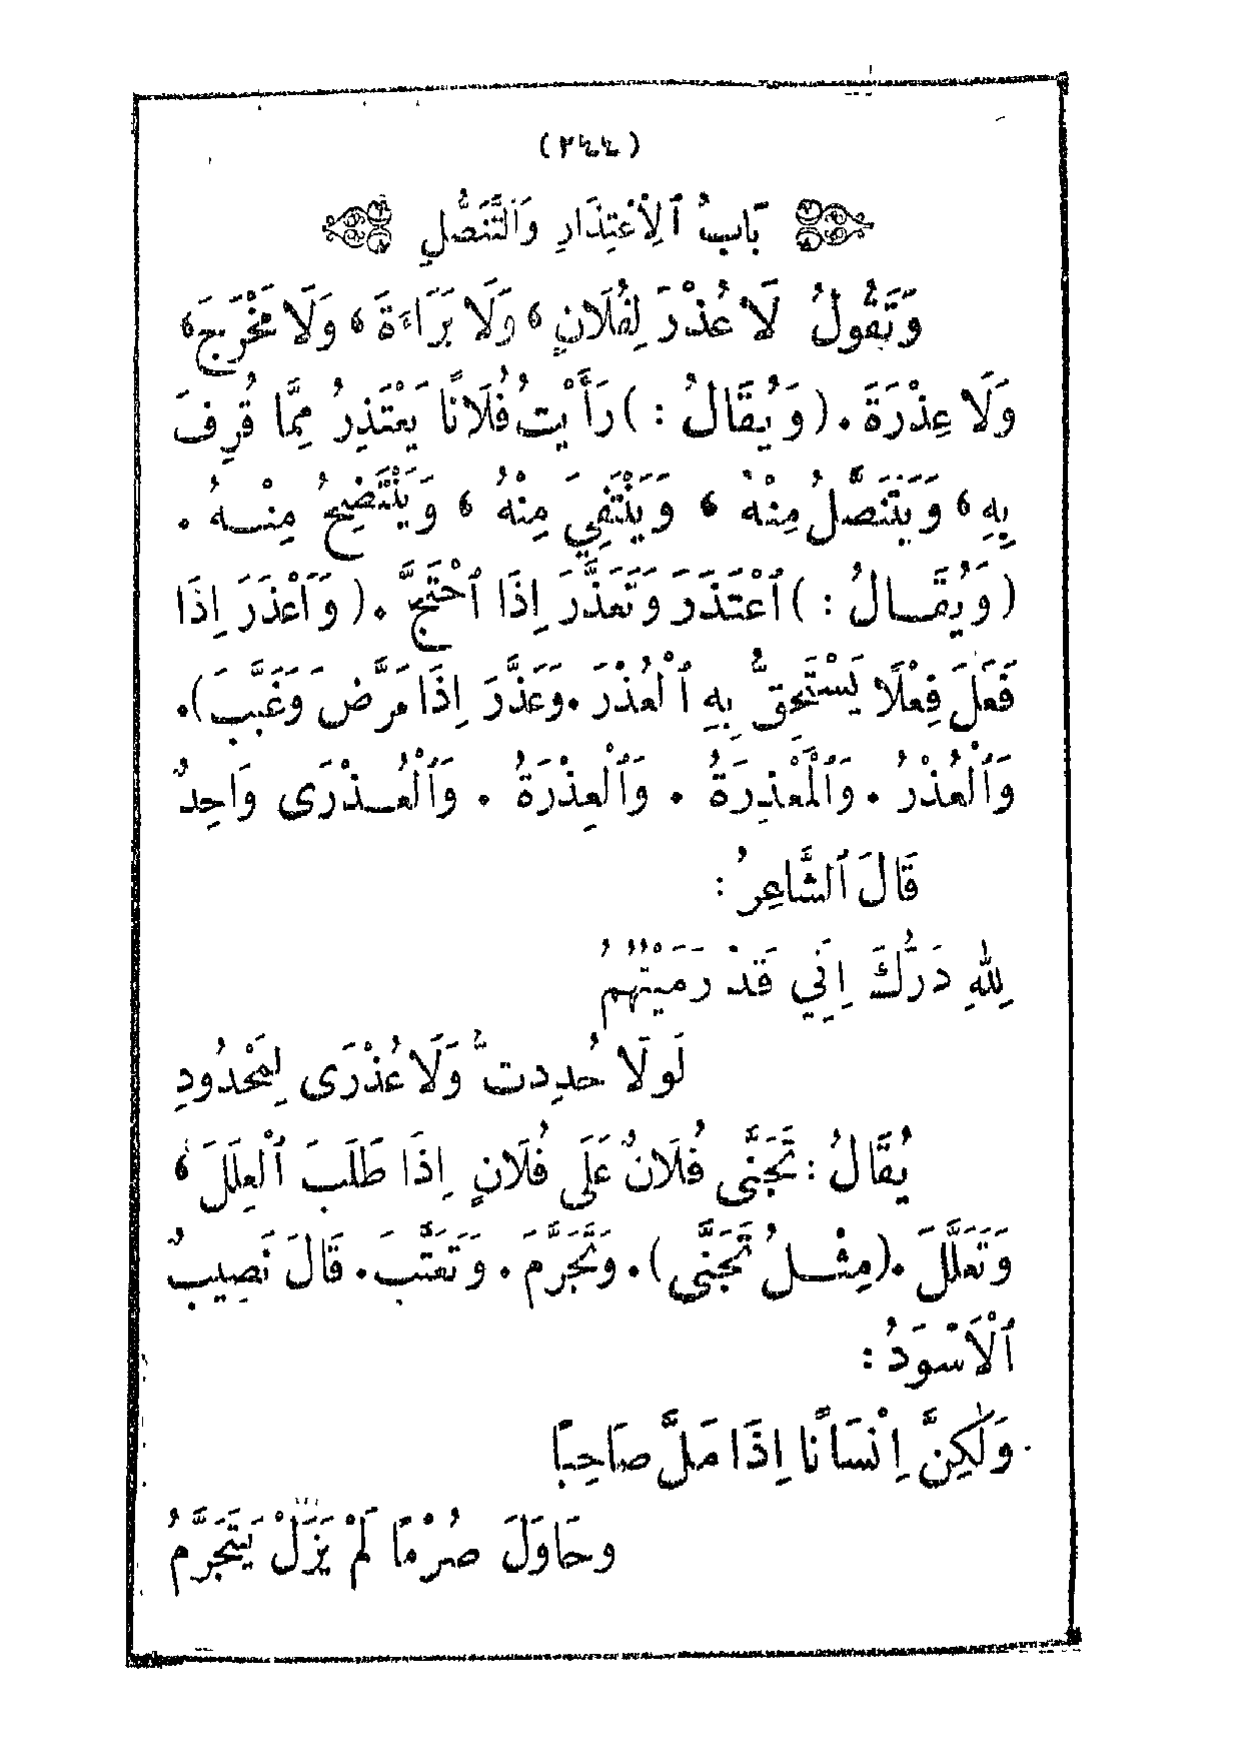 (٢٤٤)
بَابُ ٱلِٱعْتِذَارِ وَٱلتَّنَصُّلِ
وَتَقُولُ لَا عُذْرَ لِفُلَانٍ، وَلَا بَرَاءَةَ، وَلَا مَخْرَجَ،
وَلَا عِذْرَةَ. (وَيُقَالُ:) رَأَيْتُ فُلَانًا يَعْتَذِرُ مِمَّا قُرِفَ
بِهِ، وَيَتَنَصَّلُ مِنْهُ، وَيَنْتَفِي مِنْهُ، وَيَنْتَضِحُ مِنْهُ.
(وَيُقَالُ:) ٱعْتَذَرَ وَتَعَذَّرَ إِذَا ٱحْتَجَّ. (وَأَعْذَرَ إِذَا
فَعَلَ فِعْلًا يَسْتَحِقُّ بِهِ ٱلْعُذْرَ. وَعَذَّرَ إِذَا مَرَّضَ وَغَبَّبَ).
وَٱلْعُذْرُ. وَٱلْمَعْذِرَةُ. وَٱلْعِذْرَةُ. وَٱلْعُذْرَى وَاحِدٌ
قَالَ ٱلشَّاعِرُ:
لِلهِ دَرُّكَ إِنِّي قَدْ رَمَيْتُهُمُ
لَولَا حُدِدتُّ وَلَا عُذْرَى لِمَحْدُودِ
يُقَالُ: تَجَنَّى فُلَانٌ عَلَى فُلَانٍ إِذَا طَلَبَ ٱلْعِلَلَ،
وَتَعَلَّلَ. (مِثْلُ تَجَنَّى). وَتَجَرَّمَ. وَتَعَتَّبَ. قَالَ نَصِيبٌ
ٱلْأَسْوَدُ:
وَلٰكِنَّ إِنْسَانًا إِذَا مَلَّ صَاحِبًا
وحَاوَلَ صُرْمًا لَمْ يَزَلْ يَتَجَرَّمُ